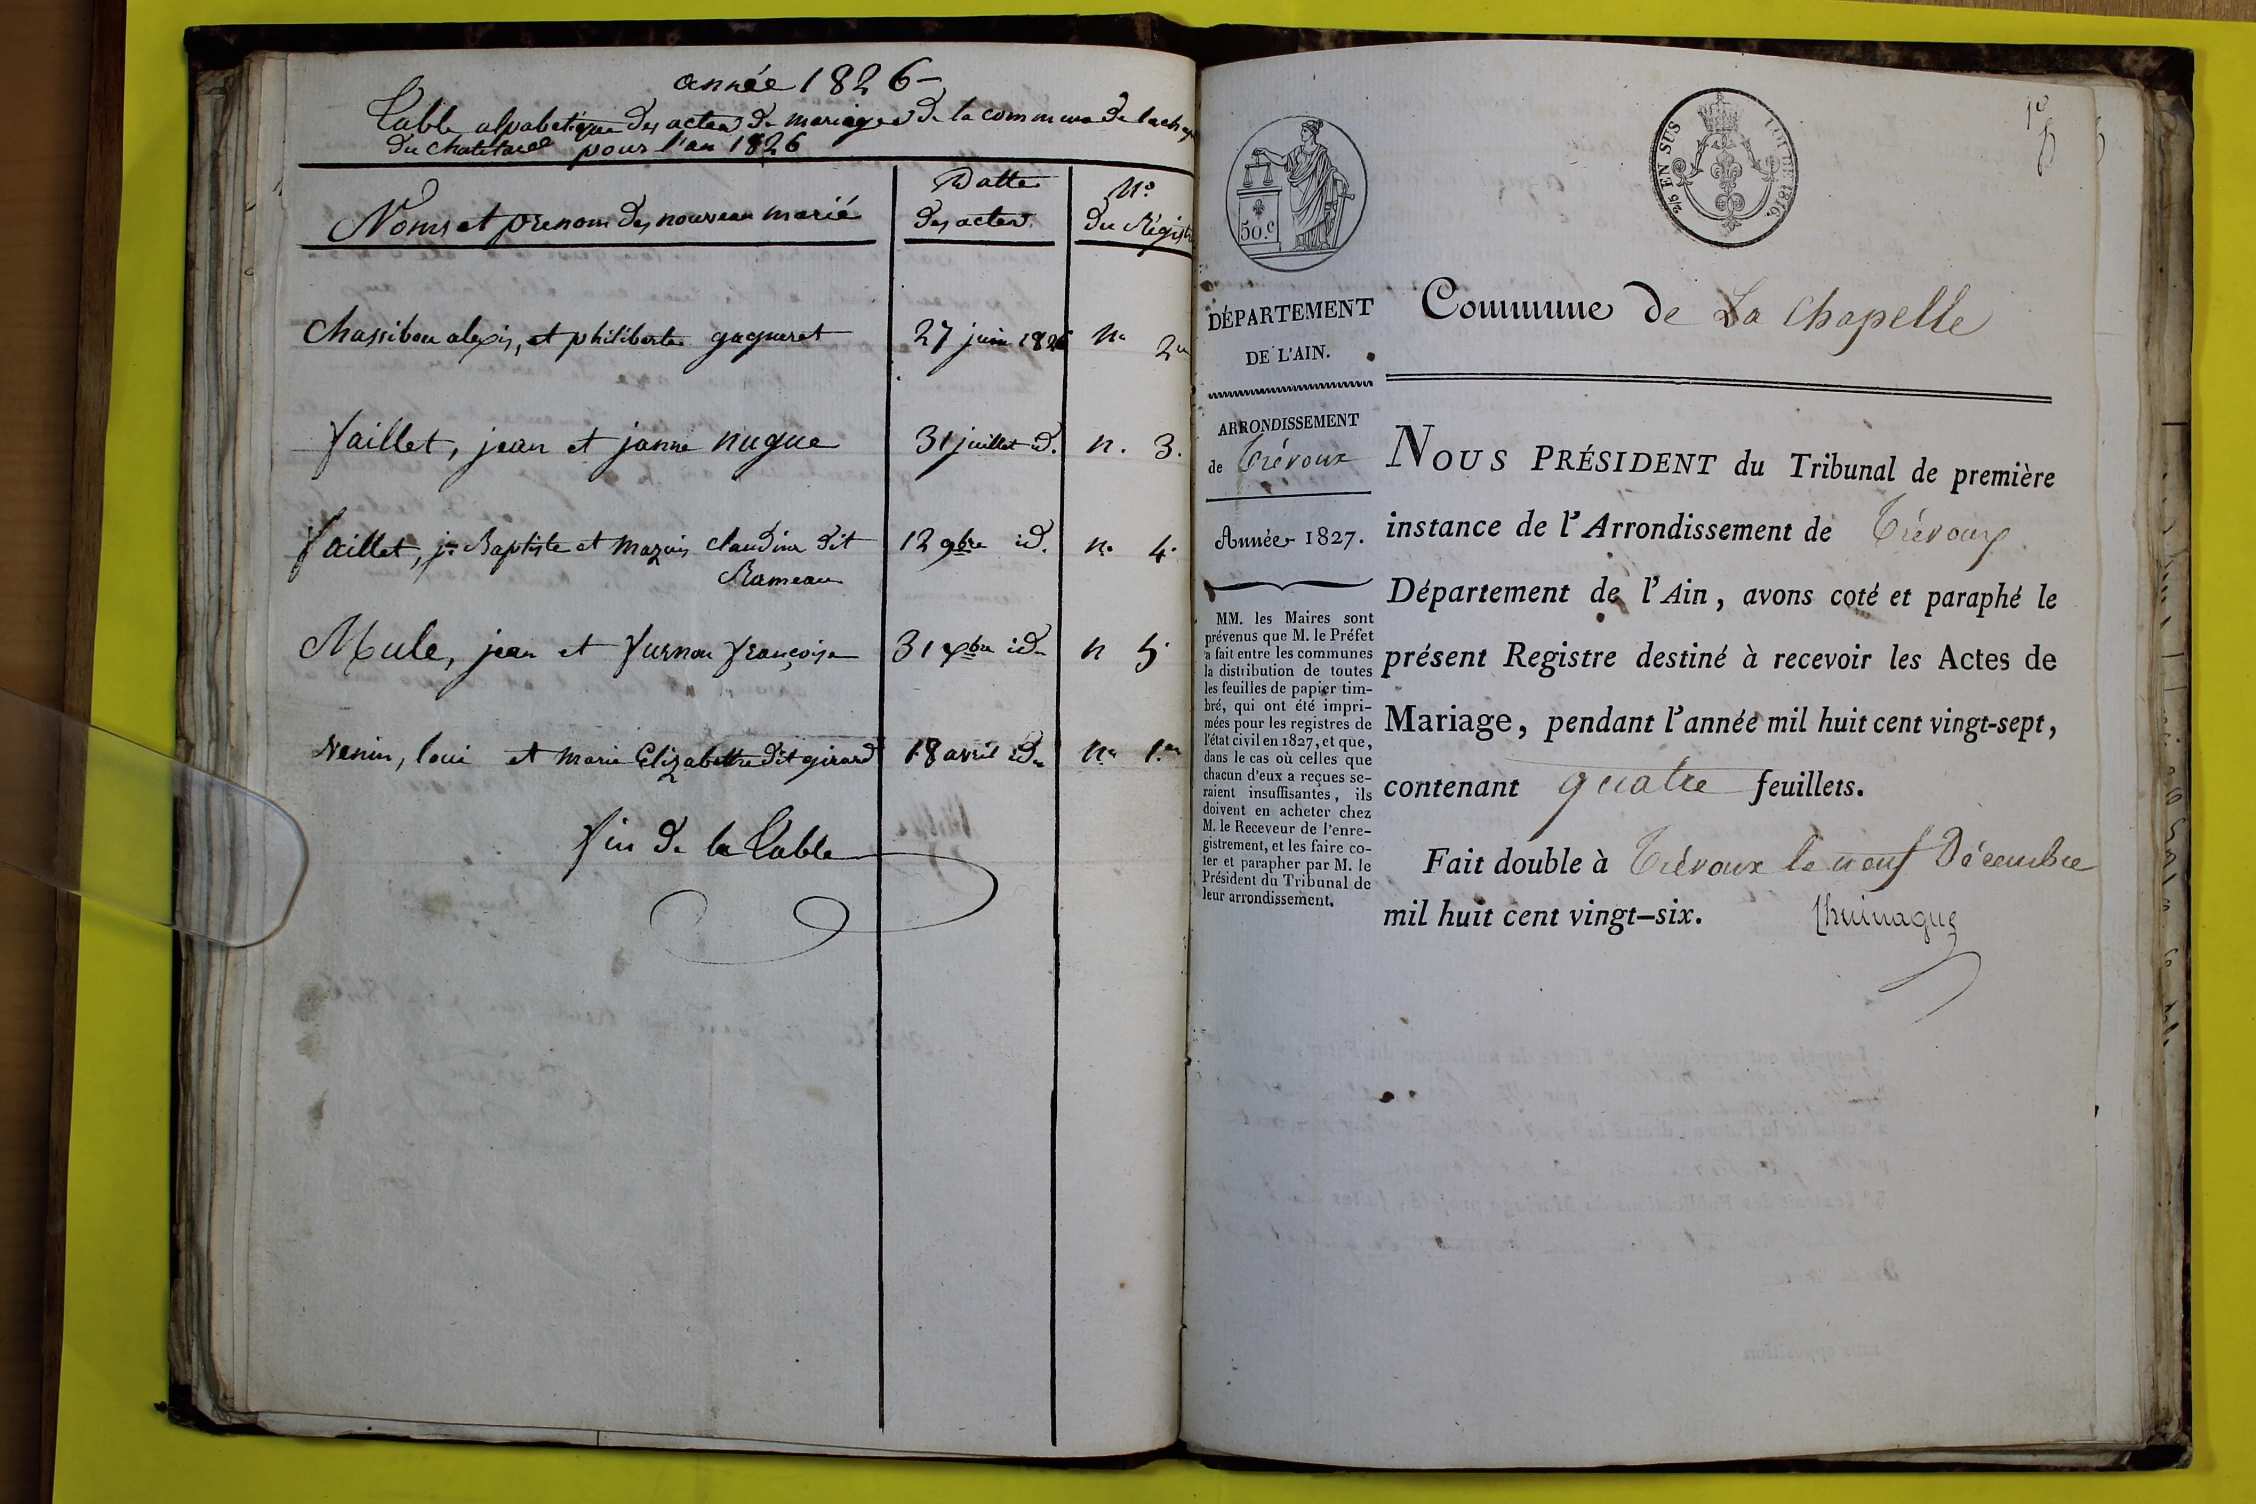 année 1826
Table alpabetique des actes de mariages de la commune de lachap
du chatelard pour l'an 1826
Noms et prenom des nouveau marié
Datte
des actes
No
du Régist
Chassibou alexis, et philiberte gagneret
27 juin 1826
no 2
faillet, jean et janne nugue
31 juillet id.
n. 3.
faillet, jn Baptiste et mazuis claudine dit
Rameau
12 9bre id.
no 4.
Mule, jean et furnon françoise
31 xbre id
n 5.
Nenin, loui et marie Elizabethe dit girard
18 avril id
no 1er
fin de la Table
50.c
2/5 EN SUS
LOI DE 1816.
1er
DÉPARTEMENT
DE L'AIN.
ARRONDISSEMENT
de Trévoux
Année 1827.
MM. les Maires sont
prévenus que M. le Préfet
a fait entre les communes
la distribution de toutes
les feuilles de papier tim-
bré, qui ont été impri-
mées pour les registres de
l'état civil en 1827, et que,
dans le cas où celles que
chacun d'eux a reçues se-
raient insuffisantes, ils
doivent en acheter chez
M. le Receveur de l'enre-
gistrement, et les faire co-
ter et parapher par M. le
Président du Tribunal de
leur arrondissement.
Commune de La Chapelle
NOUS PRÉSIDENT du Tribunal de première
instance de l'Arrondissement de Trévoux
Département de l'Ain, avons coté et paraphé le
présent Registre destiné à recevoir les Actes de
Mariage, pendant l'année mil huit cent vingt-sept,
contenant quatre feuillets.
Fait double à Trévoux le neuf Décembre
mil huit cent vingt-six.